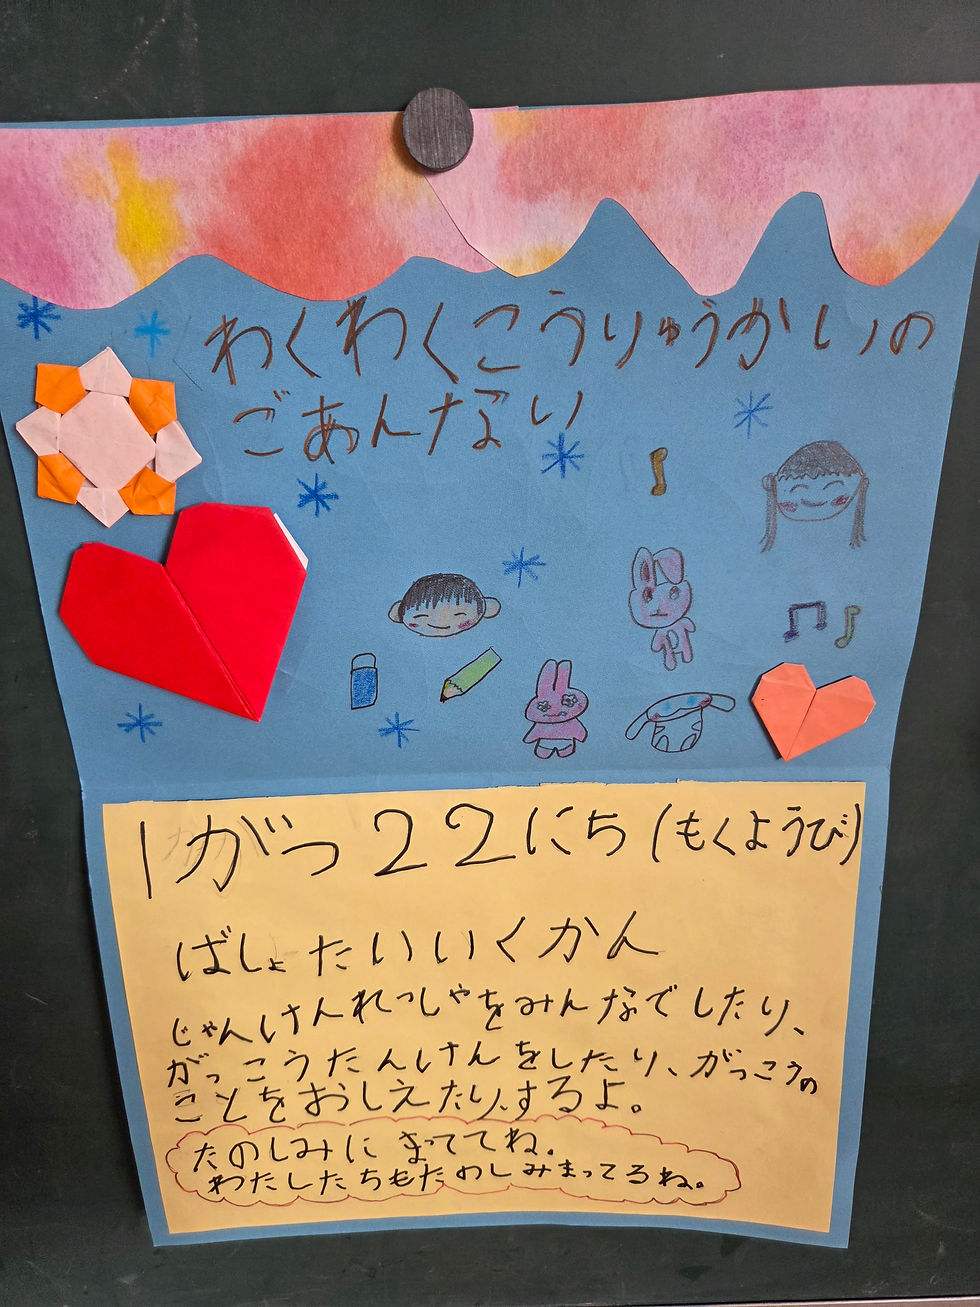 わくわくこうりゅうかいの
ごあんない
1がつ22にち(もくようび)
ばしょたいいくかん
じゃんけんれっしゃをみんなでしたり、
がっこうたんけんをしたり、がっこうの
ことをおしえたり、するよ。
たのしみにまっててね。
わたしたちもたのしみまってるね。